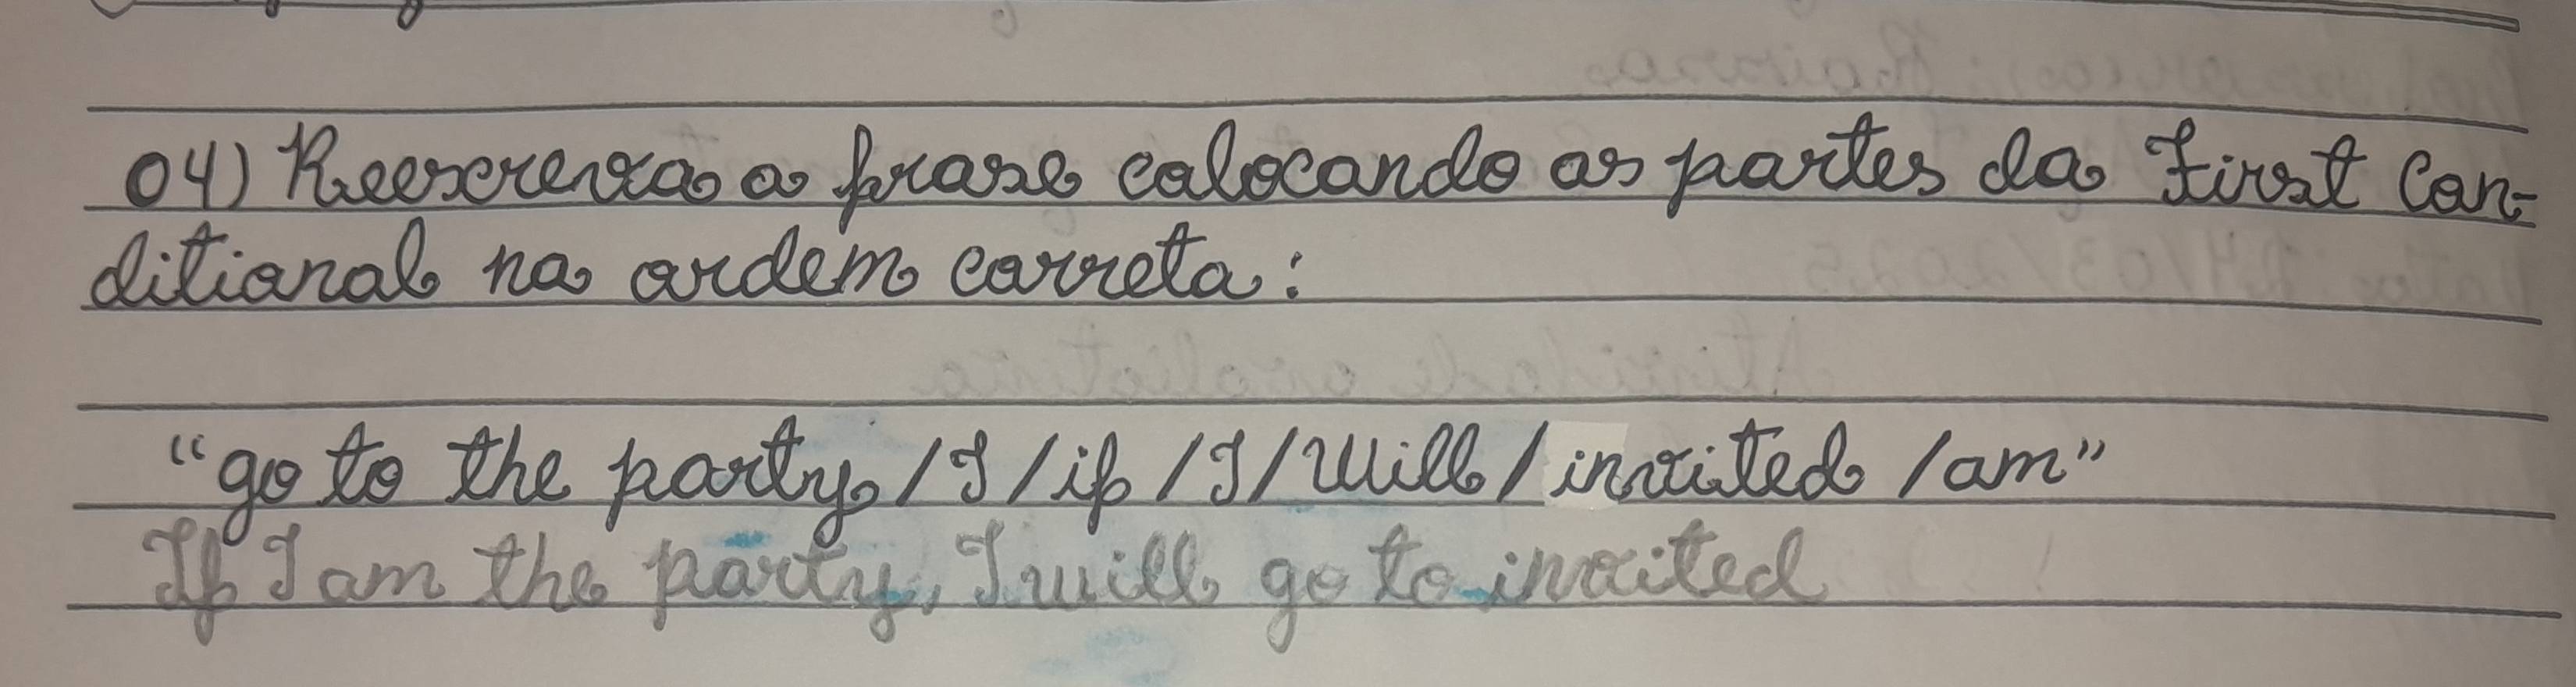 04) Reescreva a frase colocando as partes da First Con-
ditional na ordem correta:
"go to the party / I / if / I / Will / invited / am"
If I am the party, I will go to invited